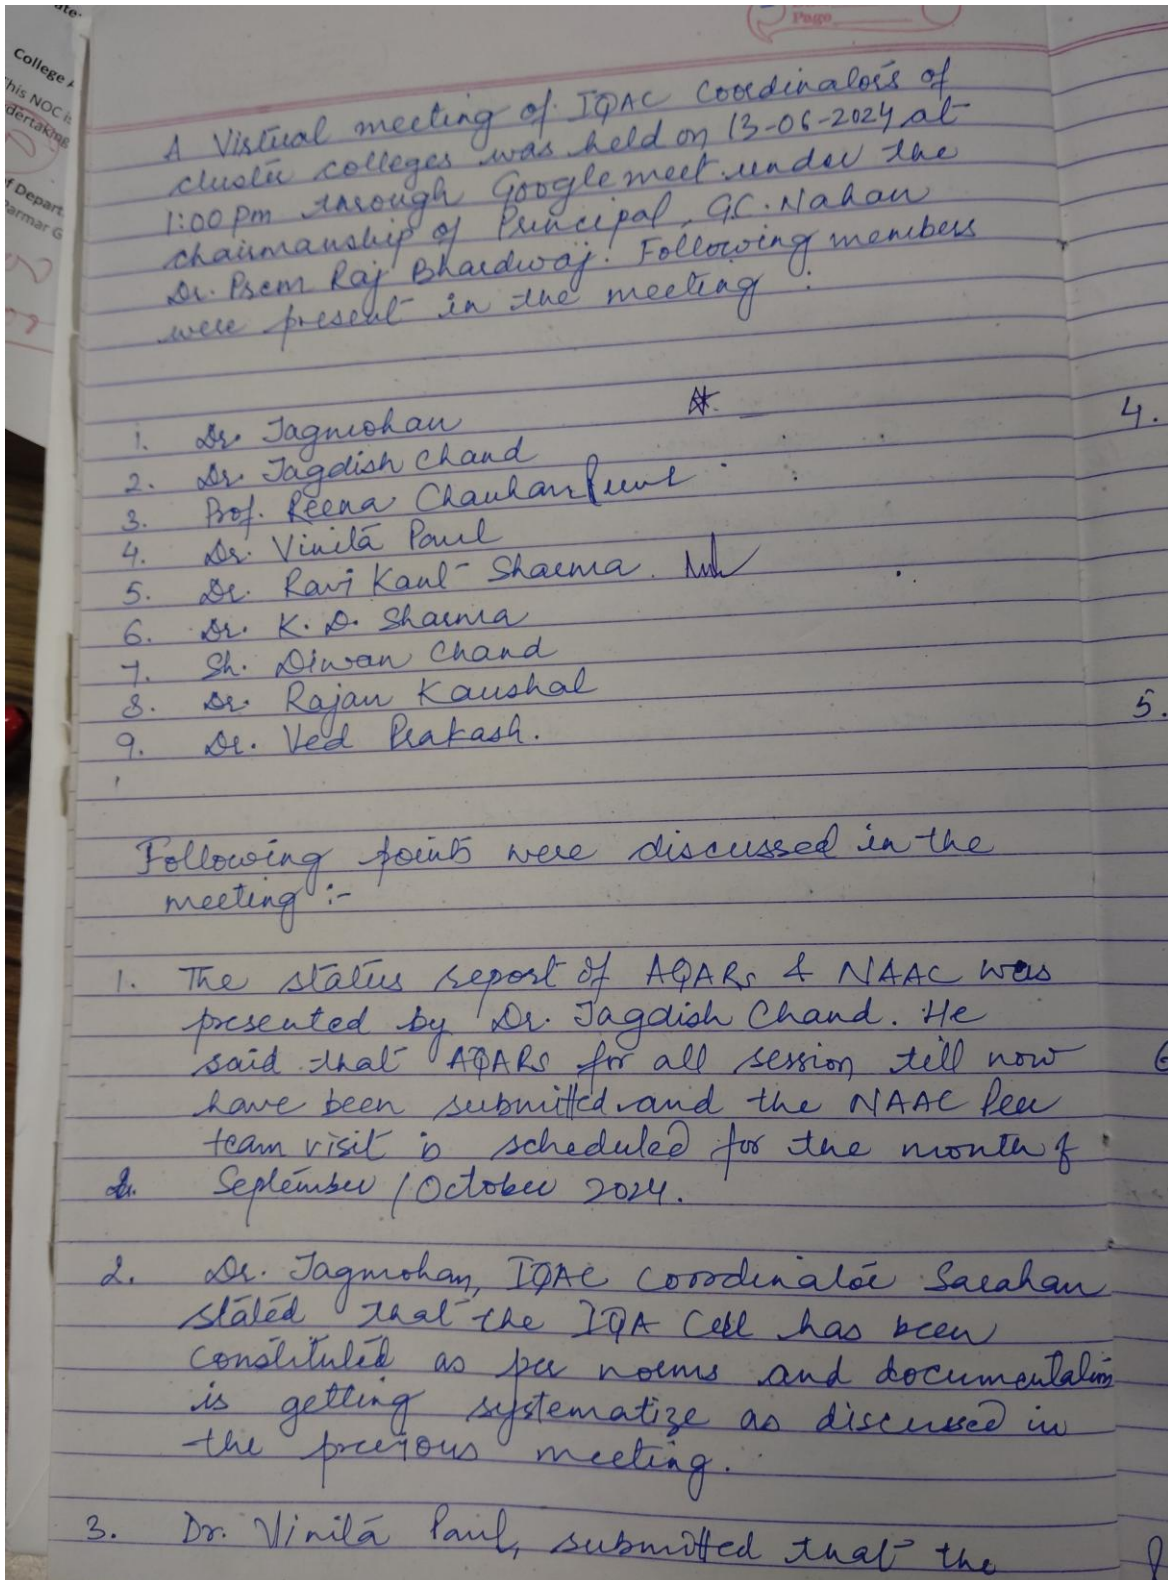 Page
College
his NOC is
dertaking
f Depart
Parmar G
A Virtual meeting of IQAC Coordinators of
cluster colleges was held on 13-06-2024 at
1:00 pm through Google meet under the
chairmanship of Principal, GC. Nahan
Dr. Prem Raj Bhardwaj. Following members
were present in the meeting :
1. Dr. Jagmohan
2. Dr. Jagdish Chand
3. Prof. Reena Chauhan
4. Dr. Vinita Paul
5. Dr. Ravi Kant Sharma.
6. Dr. K. D. Sharma
7. Sh. Diwan Chand
8. Dr. Rajan Kaushal
9. Dr. Ved Prakash.
Following points were discussed in the
meeting :-
1. The status report of AQARs & NAAC was
presented by Dr. Jagdish Chand. He
said that AQARs for all session till now
have been submitted and the NAAC Peer
team visit is scheduled for the month of
September / October 2024.
2. Dr. Jagmohan, IQAC Coordinator Sarahan
stated that the IQA Cell has been
constituted as per norms and documentation
is getting systematize as discussed in
the previous meeting.
3. Dr. Vinita Paul, submitted that the
4.
5.
6